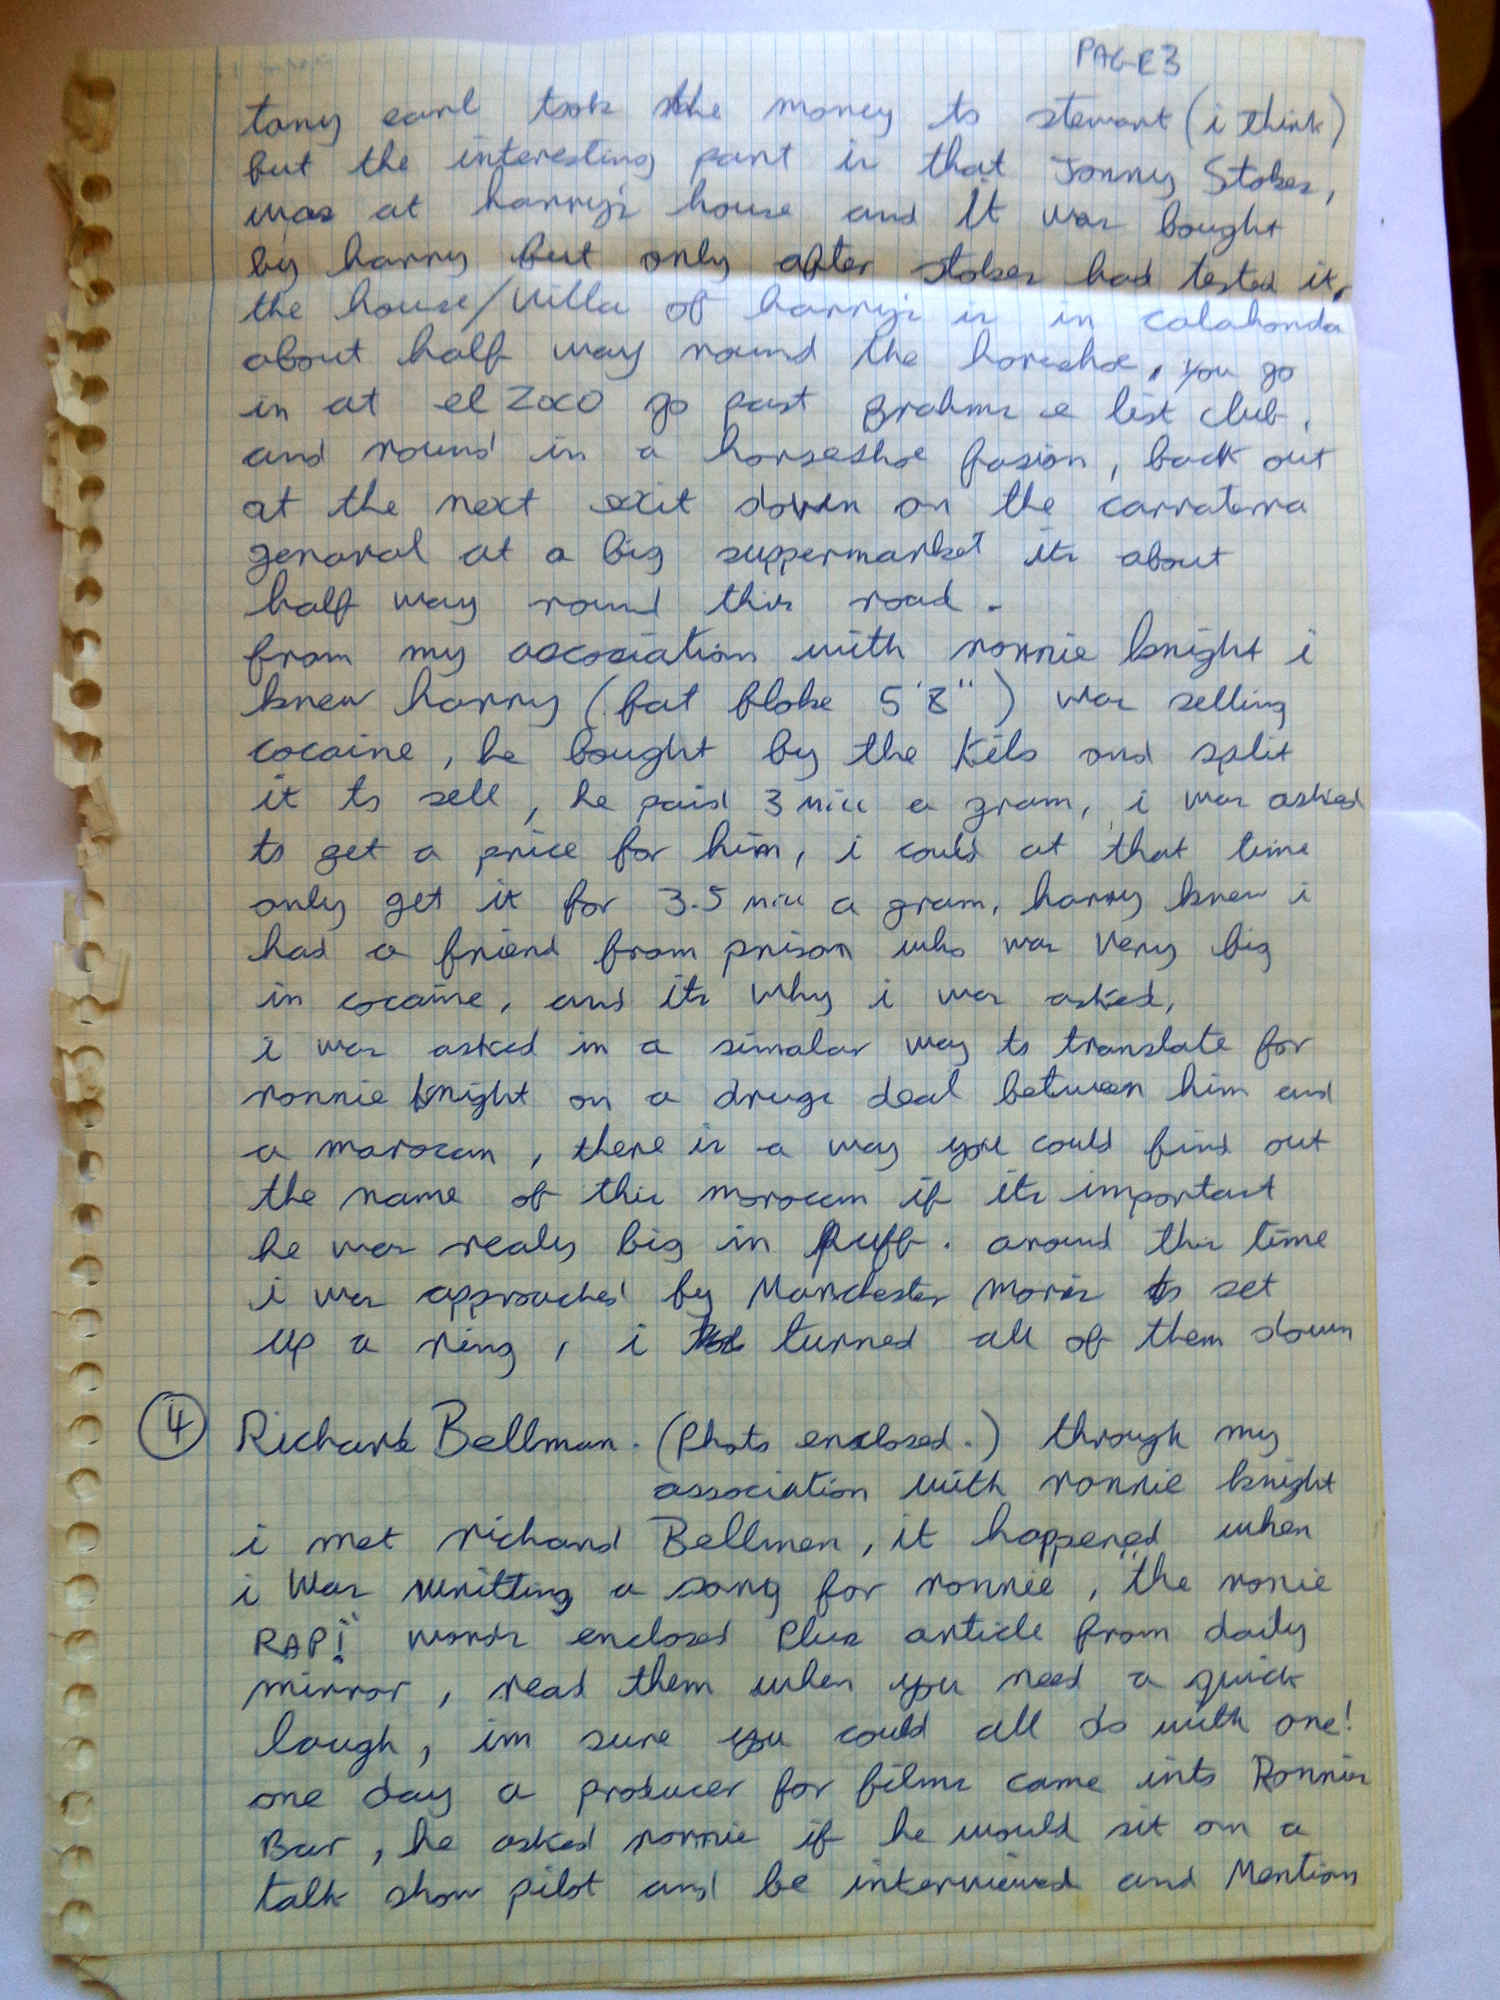 PAGE 3
tony earl took the money to stewart (i think)
but the interesting part is that Jonny Stokes,
was at harry's house and It was bought
by harry but only after stokes had tested it,
the house/villa of harry's is in calahonda
about half way round the horeshoe, you go
in at el ZOCO go past Brahms e list club,
and round in a horseshoe fasion, back out
at the next exit down on the carraterra
genaral at a big suppermarket its about
half way round this road.
from my ascosiation with ronnie knight i
knew harry (fat bloke 5'8") was selling
cocaine, he bought by the kilo and split
it to sell, he paid 3 mill a gram, i was asked
to get a price for him, i could at that time
only get it for 3.5 mill a gram, harry knew i
had a friend from prison who was very big
in cocaine, and its why i was asked,
i was asked in a simalar way to translate for
ronnie knight on a drugs deal between him and
a morocan, there is a way you could find out
the name of this morocan if its important
he was realy big in puff. around this time
i was approached by Manchester moris to set
up a ring, i turned all of them down
4 Richard Bellman. (Photo enclosed.) through my
association with ronnie knight
i met richard Bellman, it happened when
i was writting a song for ronnie, "the ronie
RAP!" words enclosed plus article from daily
mirror, read them when you need a quick
laugh, im sure you could all do with one!
one day a producer for films came into Ronnies
Bar, he asked ronnie if he would sit on a
talk show pilot and be interviewed and Mention